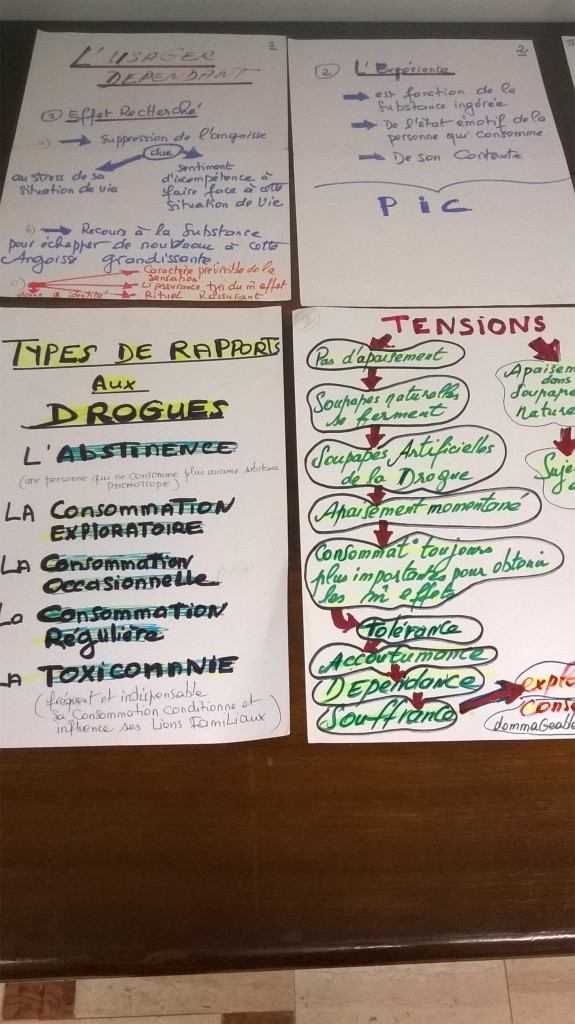 L'USAGER
DEPENDANT
① Effet Recherché
a) Suppression de l'angoisse
due
au stress de sa
Situation de vie
sentiment
d'incompétence à
faire face à cette
Situation de Vie
b) Recours à la Substance
pour échapper de nouveau à cette
Angoisse grandissante
Caractère prévisible de la
sensation
L'assurance, tjrs du m̂ effet
Rituel Rassurant
2
② L'Expérience
est fonction de la
Substance ingérée
De l'état émotif de la
personne qui consomme
De son Contexte
PIC
TYPES DE RAPPORTS
Aux
DROGUES
L'ABSTINENCE
(une personne qui ne consomme plus aucune substance
PSYCHOTROPE)
LA Consommation
EXPLORATOIRE
LA Consommation
Occasionnelle
La Consommation
Régulière
LA TOXICOMANIE
(fréquent et indispensable
sa Consommation conditionne et
influence ses Liens Familiaux)
TENSIONS
Pas d'apaisement
Soupapes naturelles
se ferment
Soupapes Artificielles
de la Drogue
Apaisement momentané
Consommat° toujours
plus importantes pour obtenir
les m̂ effets
Tolérance
Accoutumance
Dépendance
Souffrance
Apaisem
dans
Soupape
nature
Suje
explo
conse
dommageable